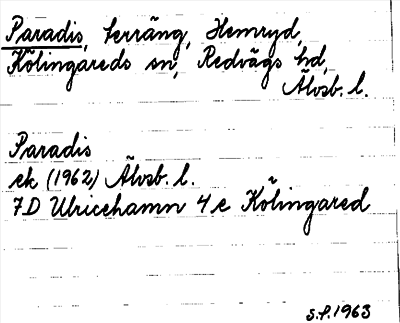 Paradis, terräng, Hemryd,
Kölingareds sn, Redvägs hd,
Älvsb. l.
Paradis
ek (1962) Älvsb. l.
7D Ulricehamn 4e Kölingared
S.P. 1963